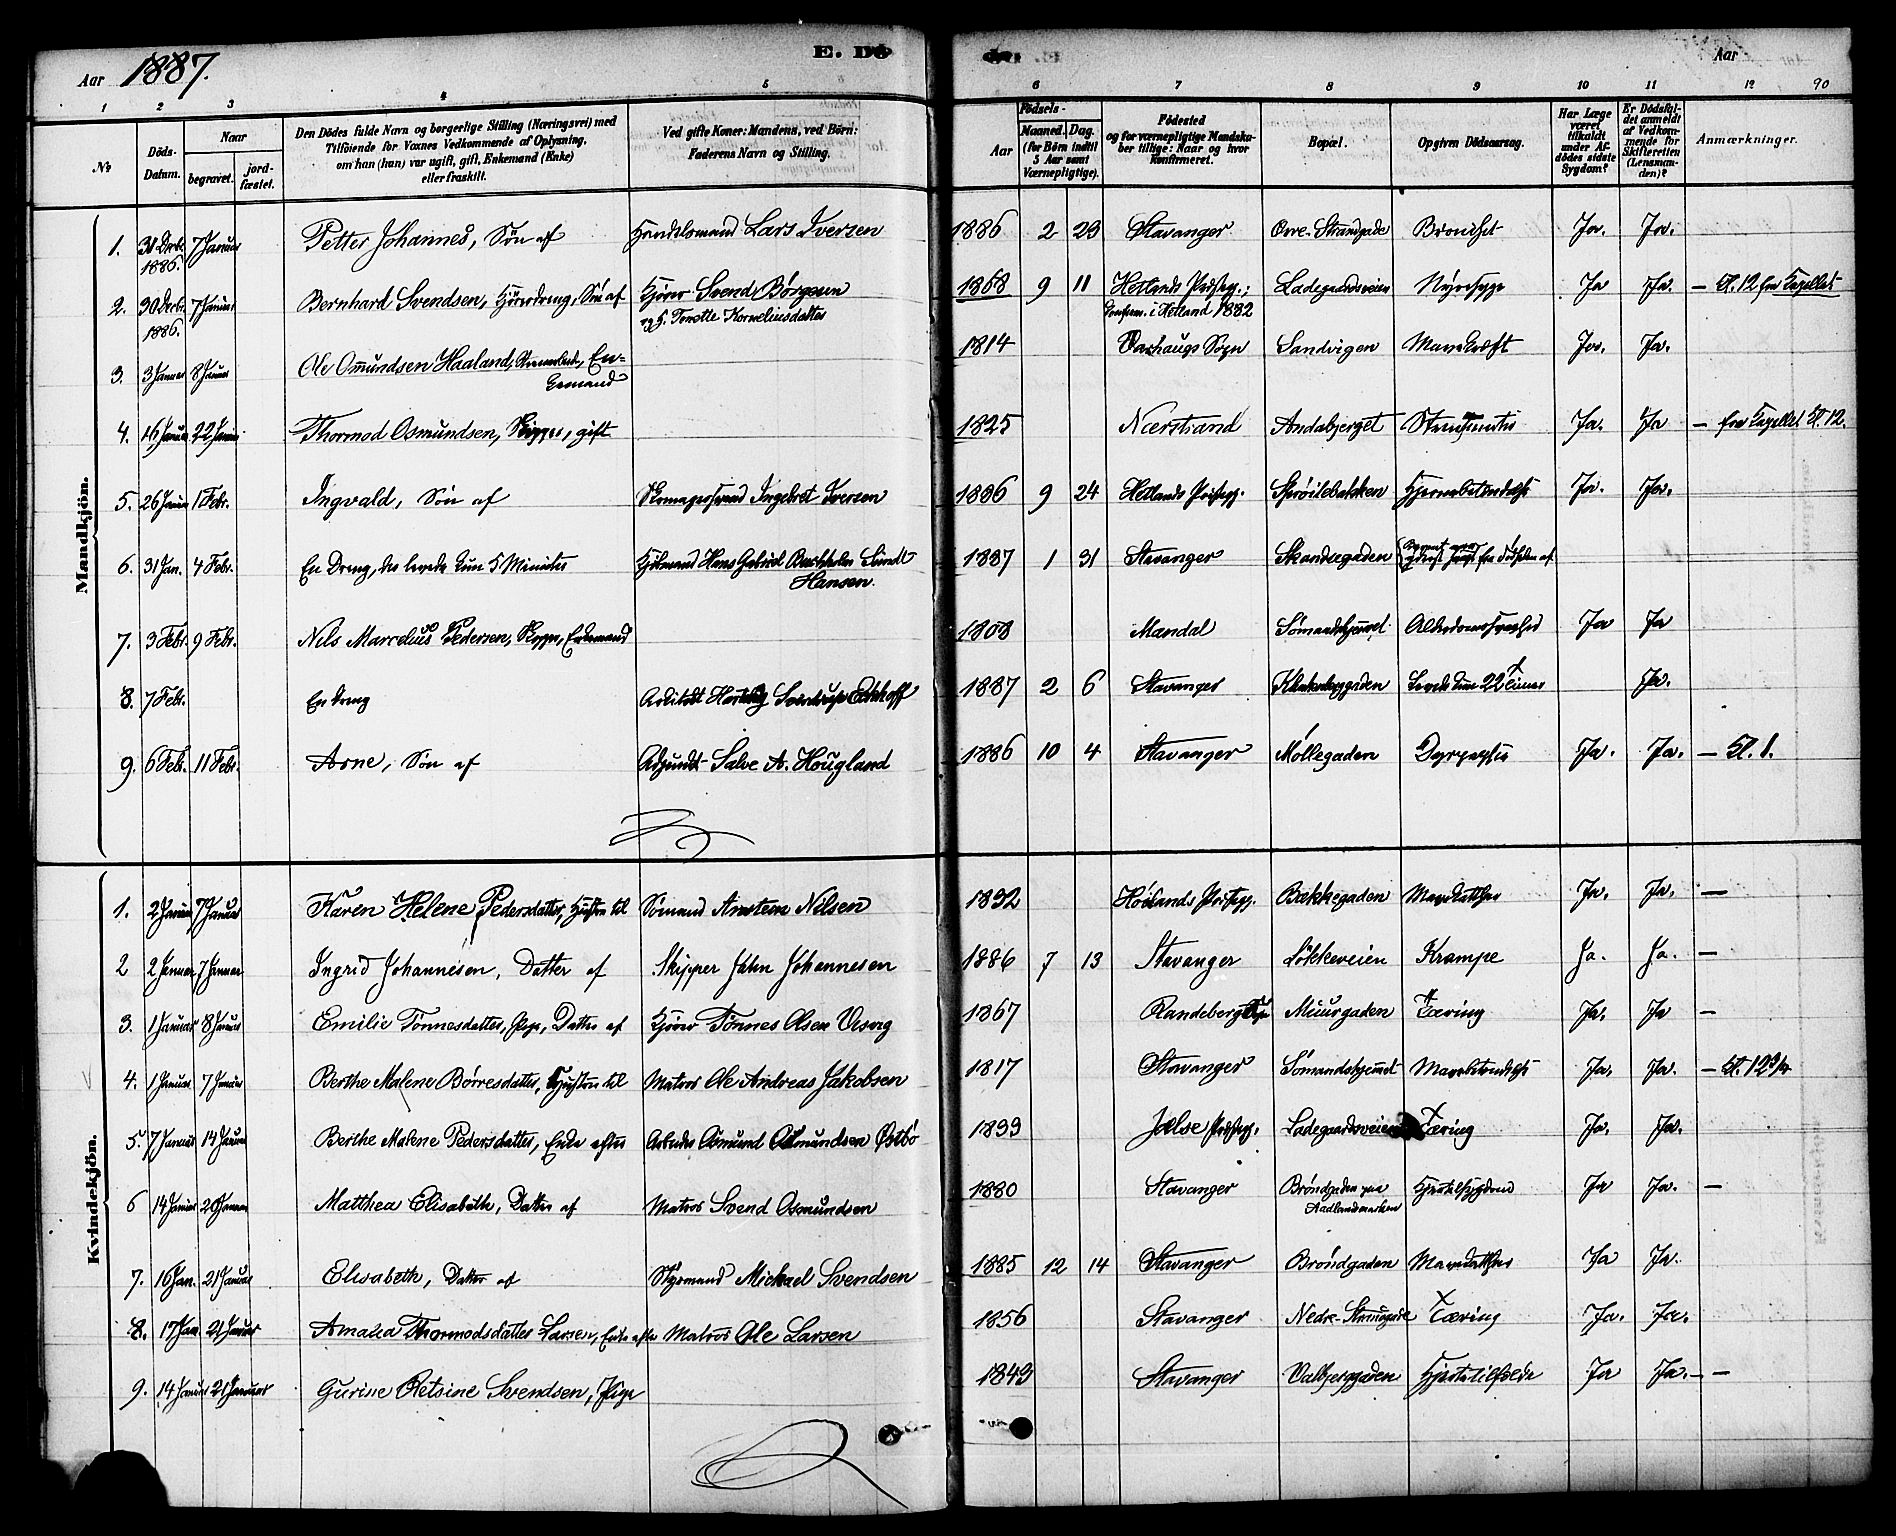 Aar 1887.
E. Dö
Aar
90
1 2 3 4 5 6 7 8 9 10 11 12
No
Döds-Datum.
Naar
begravet.
jord-fæstet.
Den Dödes fulde Navn og borgerlige Stilling (Næringsvei) med
Tilföiende for Voxnes Vedkommende af Oplysning,
om han (hun) var ugift, gift, Enkemand (Enke)
eller fraskilt.
Ved gifte Koner: Mandens, ved Börn:
Faderens Navn og Stilling.
Födsels-
Aar
Maaned. Dag.
(for Börn indtil
5 Aar samt
Værnepligtige).
Födested
og for værnepligtige Mandska-
ber tillige: Naar og hvor
konfirmeret.
Bopæl.
Opgiven Dödsaarsag.
Har Læge
været
tilkaldt
under Af-
dödes sidste
Sygdom?
Er Dödsfal-
det anmeldt
af Vedkom-
mende for
Skifteretten
(Lensman-
den)?
Anmærkninger.
Mandkjön.
1. 31 Decbr. 1886. 7 Januar Petter Johannes, Søn af Handelsmand Lars Iversen 1886 2 23 Stavanger Øvre-Strandgade Bronchit Ja. Ja.
2. 30 Decbr. 1886. 7 Januar Bernhard Svendsen, Søn af Kjører Svend Børgesen og H. Tonette Korneliusdatter 1868 9 11 Hetlands Præstegj.; Confirm. i Hetland 1882 Ladegaardsveien Nyresyge Ja Ja. – Kl. 12 fra Kapellet
3. 3 Januar 8 Januar Ole Omundsen Haaland, Enkemand 1814 Varhaugs Sogn Sandvigen Mavekræft Ja. Ja.
4. 16 Januar 22 Januar Thormod Osmundsen, Skipper, gift 1825 Nærstrand Andabjerget Ja. Ja – fra Kapellet Kl. 12.
5. 26 Januar 1 Febr. Ingvald, Søn af Skomagersvend Ingebret Iversen 1886 9 24 Hetlands Præstegj. Sprøitebakken Hjernebetændelse Ja. Ja.
6. 31 Jan. 4 Febr. En Dreng, der levede kun 5 Minutter Kjøbmand Hans Gabriel Buchholm Sundt Hansen. 1887 1 31 Stavanger Skandsegaden
7. 3 Febr. 9 Febr. Nils Marcelius Pedersen, Skipper, Enkemand 1808 Mandal Sømandshjemmet Alderdomssvaghed Ja Ja
8. 7 Febr. En Dreng Arkitekt Hartvig Sverdrup Eckhoff 1887 2 6 Stavanger Levede kun 22 Timer Ja.
9. 6 Febr. 11 Febr. Arne, Søn af Adjunkt Salve A. Hougland 1886 10 4 Stavanger Møllegaden Dyspepsie Ja. Ja. – Kl. 1.
Kvindekjön.
1. 2 Januar 7 Januar Karen Helene Pedersdatter, Hustru til Sømand Amstein Nilsen 1832 Høilands Præstegj. Bækkegaden Mavekatthar Ja. Ja. –
2 2 Januar 7 Januar Ingrid Johannesen, Datter af Skipper John Johannesen 1886 7 13 Stavanger Løkkeveien Krampe Ja. Ja. –
3. 1 Januar 8 Januar Emilie Tønnesdatter, Pige, Datter af Kjører Tønnes Olsen 1867 Randeberg Sogn Muurgaden Tæring Ja. Ja –
4. 1 Januar 7 Januar Berthe Malene Børresdatter, Hustru til Matros Ole Andreas Jakobsen 1817 Stavanger Sømandshjemmet Mavebetændelse Ja. Ja. – Kl. 12 3/4
5. 7 Januar 14 Januar Berthe Malene Pedersdatter, Enke efter Arbeider Osmund Asmundsen Østbø 1833 Jælse Præstegj. Ladegaardsveien Tæring Ja. Ja.
6 14 Januar 20 Januar Matthea Elisabeth, Datter af Matros Svend Osmundsen 1880 Stavanger Brøndgaden paa Aadlandmarken Hjertesygdom Ja Ja. –
7. 16 Jan. 21 Januar Elisabeth, Datter af Styrmand Mickael Svendsen 1885 12 14 Stavanger Brøndgaden Mavekatthar Ja Ja.
8. 17 Jan. 21 Januar Amalia Thormodsdatter Larsen, Enke efter Matros Ole Larsen 1856 Stavanger Nedre-Strandgade Tæring Ja. Ja.
9. 14 Januar 21 Januar Gurine Retsine Svendsen, Pige 1843 Stavanger Valbjerggaden Hjertetilfælde Ja Ja. – –